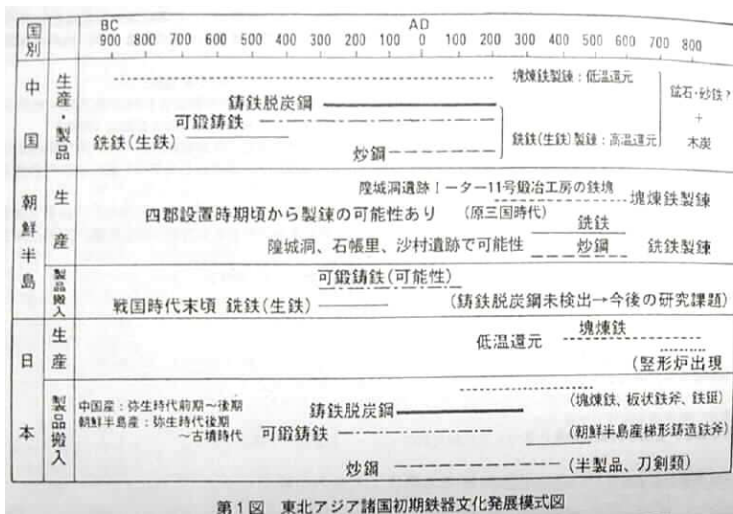 国別
BC AD
900 800 700 600 500 400 300 200 100 0 100 200 300 400 500 600 700 800
中国
生産・製品
塊煉鉄製錬：低温還元
鋳鉄脱炭鋼
可鍛鋳鉄
銑鉄(生鉄)
銑鉄(生鉄)製錬：高温還元
炒鋼
鉱石・砂鉄？
+
木炭
朝鮮半島
生産
隍城洞遺跡Ⅰーター11号鍛冶工房の鉄塊
塊煉鉄製錬
四郡設置時期頃から製錬の可能性あり
(原三国時代)
銑鉄
隍城洞、石帳里、沙村遺跡で可能性
炒鋼
銑鉄製錬
製品搬入
可鍛鋳鉄(可能性)
戦国時代末頃 銑鉄(生鉄)
(鋳鉄脱炭鋼未検出→今後の研究課題)
日本
生産
塊煉鉄
低温還元
(竪形炉出現
製品搬入
中国産：弥生時代前期～後期
朝鮮半島産：弥生時代後期
～古墳時代
(塊煉鉄、板状鉄斧、鉄鋌)
鋳鉄脱炭鋼
可鍛鋳鉄
(朝鮮半島産梯形鋳造鉄斧)
炒鋼
(半製品、刀剣類)
第1図 東北アジア諸国初期鉄器文化発展模式図